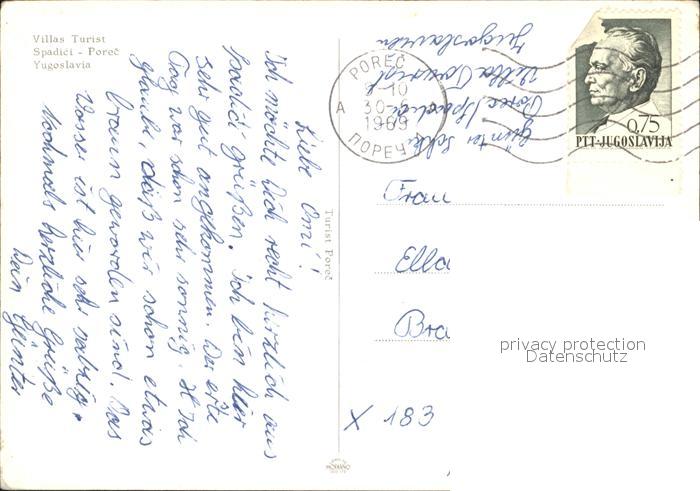 Villas Turist
Spadići - Poreč
Yugoslavia
Liebe Omi!
Ich möchte Dich recht herzlich aus
Spadići grüßen. Ich bin hier
sehr gut angekommen. Der erste
Tag war schon sehr sonnig. Ich
glaube, daß wir schon etwas
braun geworden sind. Das
Wasser ist hier sehr salzig.
Nochmals herzliche Grüße
Dein Günter
Turist Poreč
Günter
Poreč Spadići
Villa Tourist
Jugoslavien
POREČ
A 30
1969
ПОРЕЧ
0,75
PTT-JUGOSLAVIJA
Frau
Ella
Bra
privacy protection
Datenschutz
X 183